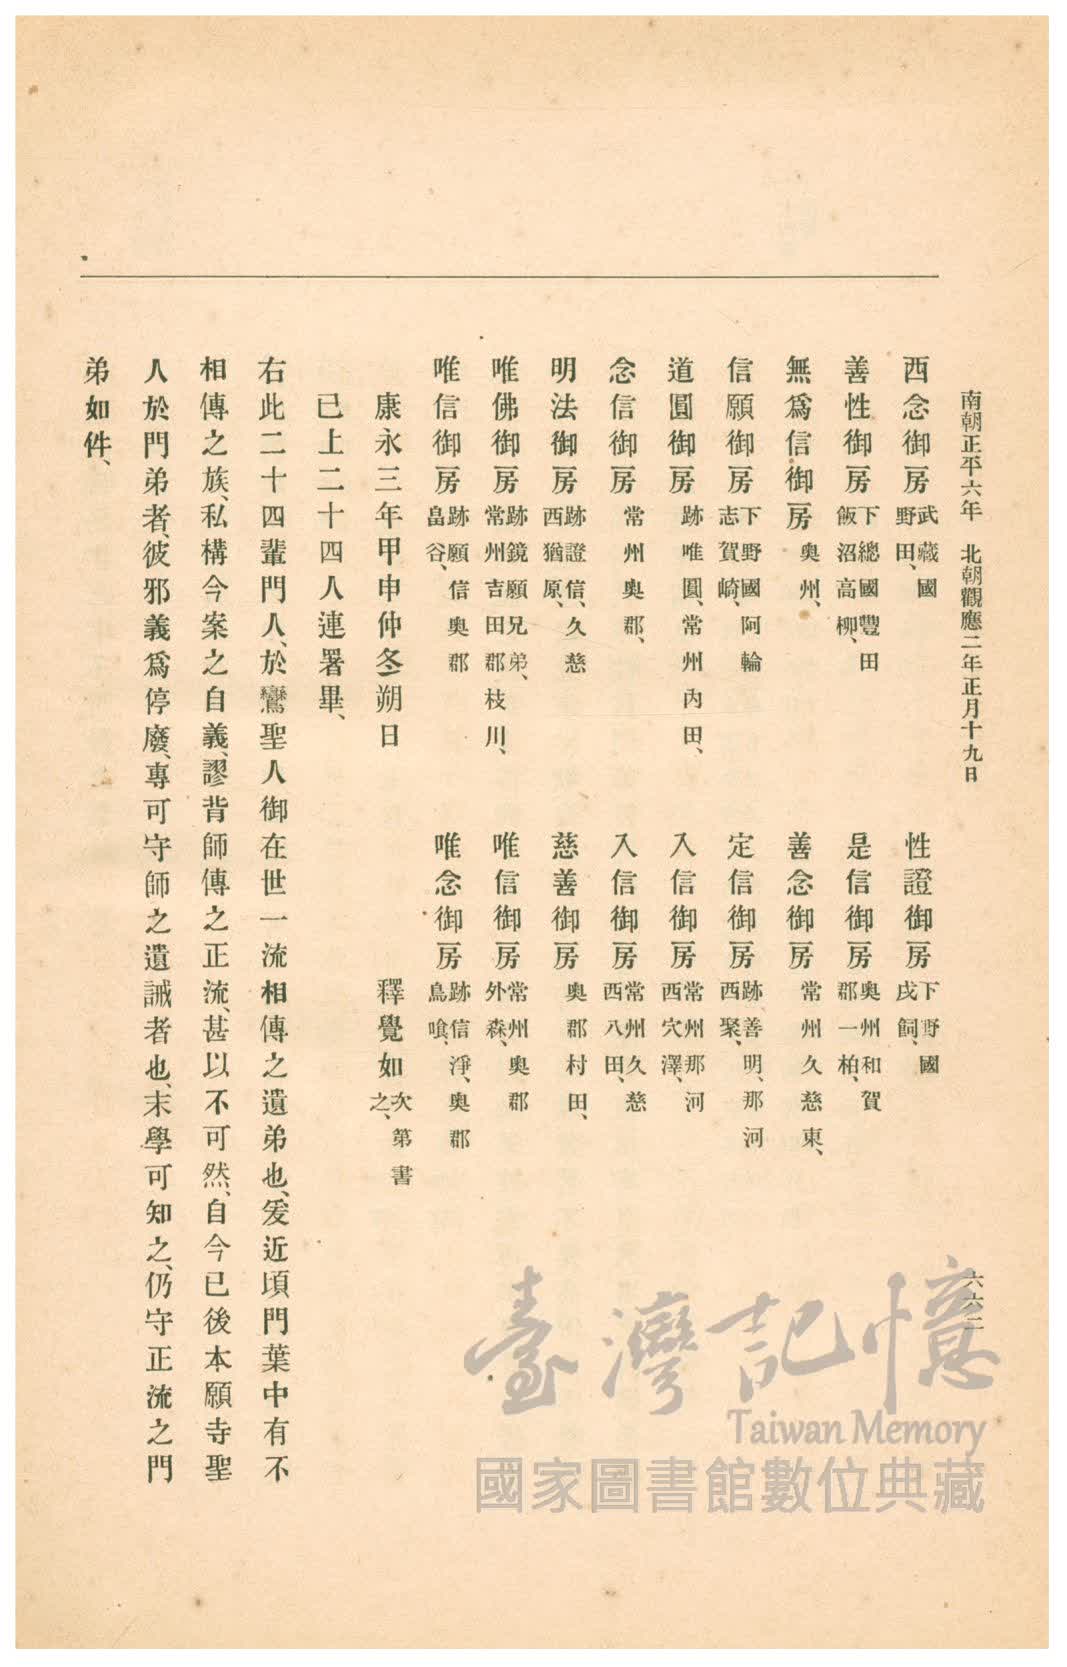 南朝正平六年　北朝觀應二年正月十九日
六六二
西念御房 武藏國野田、
性證御房 下野國戌飼、
善性御房 下總國豐田飯沼高柳、
是信御房 奧州和賀郡一柏、
無爲信御房 奧州、
善念御房 常州久慈東、
信願御房 下野國阿輪志賀崎、
定信御房 跡善明、那河西聚、
道圓御房 跡唯圓、常州內田、
入信御房 常州那河西穴澤、
念信御房 常州奧郡、
入信御房 常州久慈西八田、
明法御房 跡證信、久慈西猶原、
慈善御房 奧郡村田、
唯佛御房 跡鏡願兄弟、常州吉田郡枝川、
唯信御房 常州奧郡外森、
唯信御房 跡願信奧郡畠谷、
唯念御房 跡信淨、奧郡鳥喰、
康永三年甲申仲冬朔日
釋覺如 次第書之、
已上二十四人連署畢、
右此二十四輩門人、於鸞聖人御在世一流相傳之遺弟也、爰近頃門葉中有不
相傳之族、私構今案之自義、謬背師傳之正流、甚以不可然、自今已後本願寺聖
人於門弟者、彼邪義爲停廢、專可守師之遺誡者也、末學可知之、仍守正流之門
弟如件、
臺灣記憶
Taiwan Memory
國家圖書館數位典藏